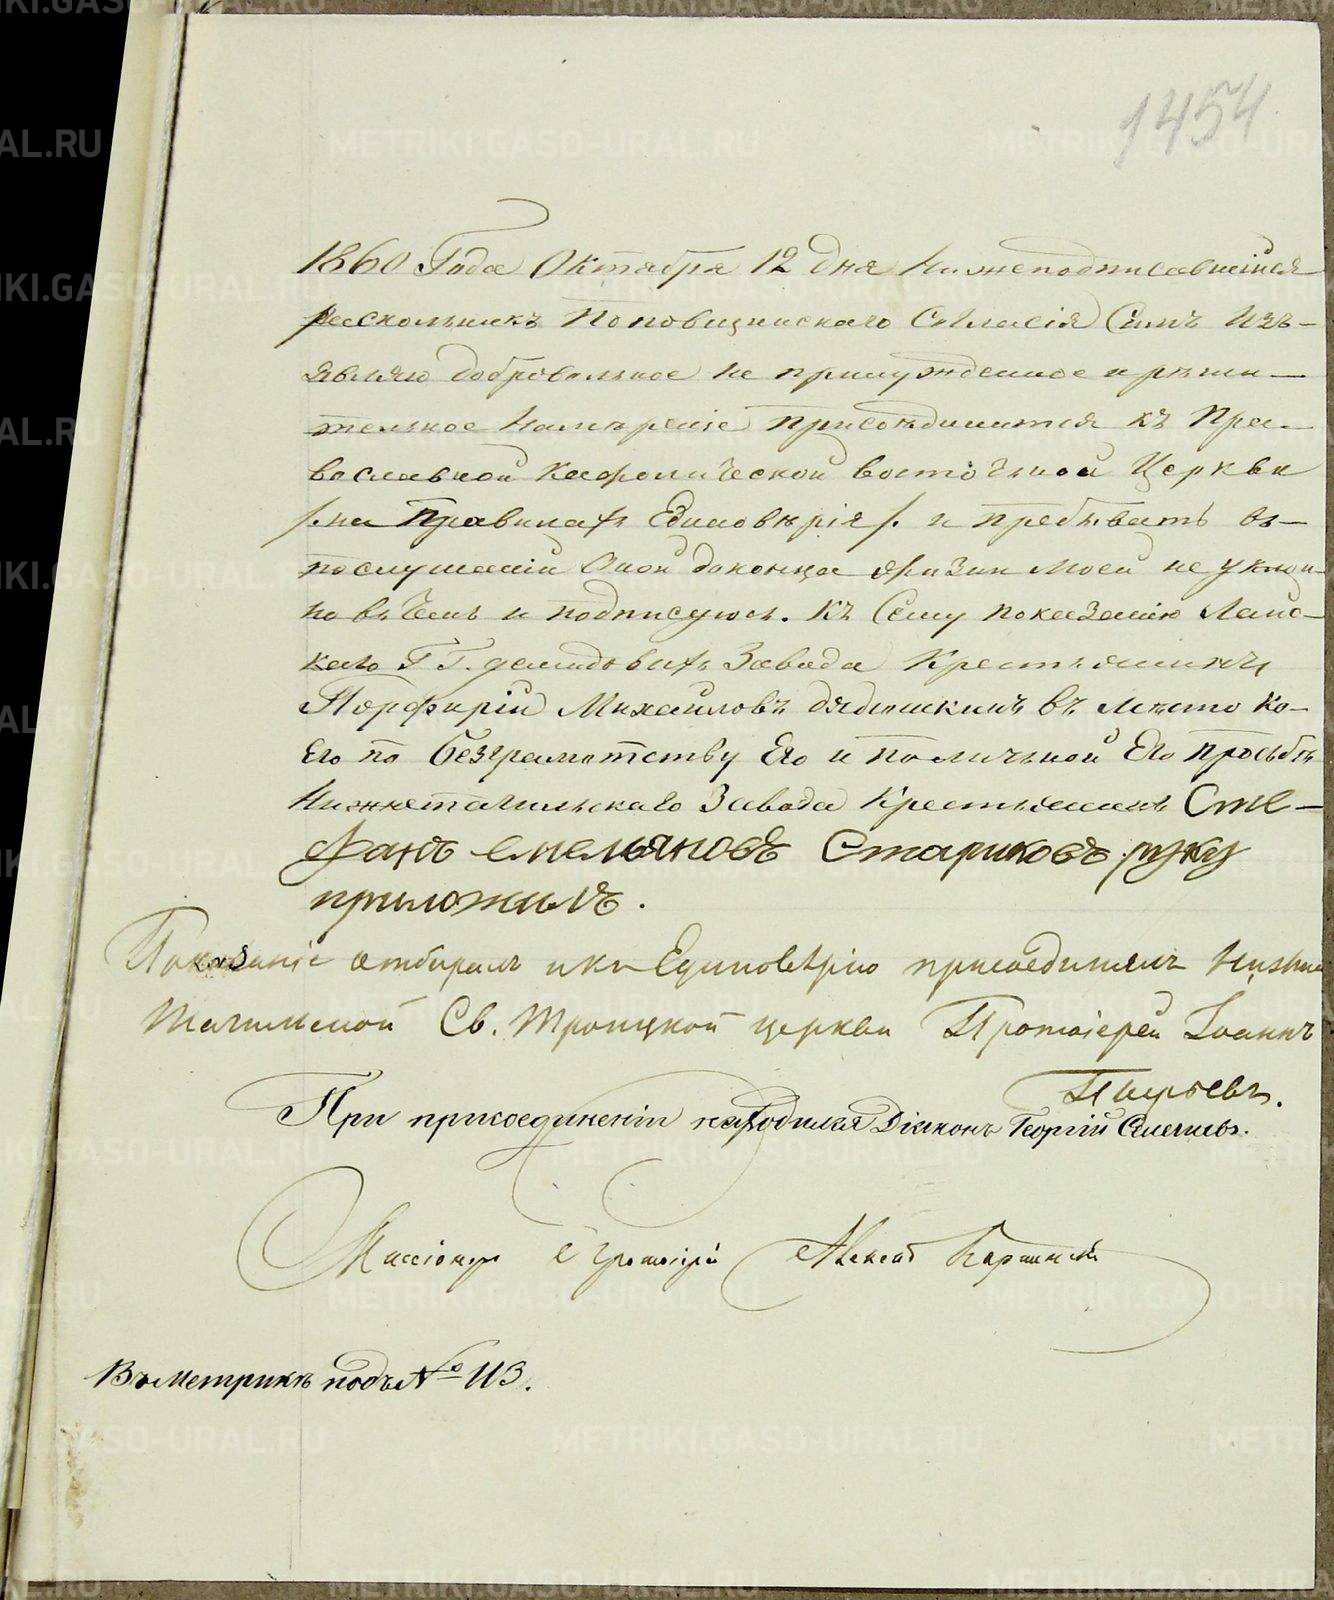 1454
1860 Года Октября 12 дня Нижеподписавшійся
раскольникъ Поповщинскаго Согласія Симъ Изъ-
являю добровольное не принужденное и рѣши-
тельное Намѣреніе присоѣдинится къ Пра-
вославной Кафолической восточной Церкви
/.на правилахъ Единовѣрія/. и пребывать въ
послушаніи Оной доконца жизни моей не уклон-
но въ Чемъ и подписуюсь. Къ Сему показанію
каго Г.Г. Демидовыхъ Завода Крестьянинъ
Порфирій Михайловъ дядюшкинъ въ мѣсто ко-
его по безграмотству Его и поличной Его прозьбѣ
Нижнетагильскаго Завода Крестьянинъ Сте-
фанъ емельяновъ Стариковъ руку
приложилъ.
Показаніе отбиралъ и къ Единовѣрію присоединялъ Нижне
Тагильской Св. Троицкой церкви Протоіерей Іоаннъ
Пырьевъ.
При присоединеніи находился Діаконъ Георгій
Миссіонеръ Протоіерей
Въ Метрикѣ подъ № 113.
METRIKI.GASO-URAL.RU